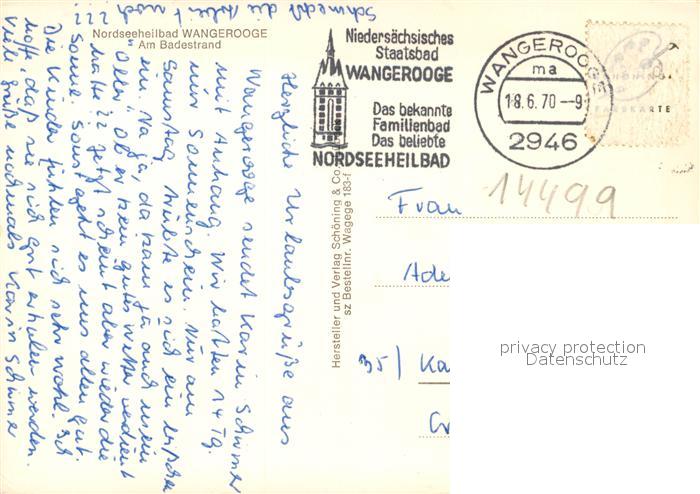 Nordseeheilbad WANGEROOGE
Am Badestrand
Schmeckt die Arbeit noch???
Herzliche Urlaubsgrüße aus
Wangerooge sendet Karin Schirmer
mit Anhang. Wir hatten 14 Tg.
nur Sonnenschein. Nur am
Samstag trübte es sich ein bißchen
ein. Na ja, da kam ja auch mein
"Oller", ob er kein gutes Wetter verdient
hatte?? Jetzt scheint aber wieder die
Sonne. Sonst geht es uns allen gut.
Die Kinder fühlen sich sehr wohl. Ich
hoffe, daß sie sich gut erholen werden.
Viele Grüße nochmals Karin Schirmer
Hersteller und Verlag Schöning & Co
sz Bestellnr. Wagege 183-f
Niedersächsisches
Staatsbad
WANGEROOGE
Das bekannte
Familienbad
Das beliebte
NORDSEEHEILBAD
WANGEROOGE
ma
18.6.70--9
2946
14499
Frau
35/ Ka
privacy protection
Datenschutz